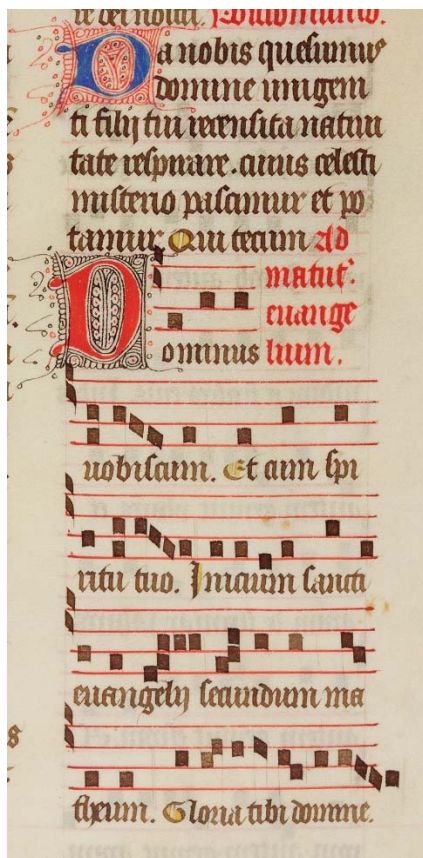 te dei noscit. Postcomunio.
Da nobis quesumus
domine unigeni
ti filij tui recensita nativi
tate respirare. cuius celesti
misterio pascimur et po
tamur Qui tecum Ad
matut.
euange
Dominus lium.
uobiscum. Et cum spi
ritu tuo. Inicium sancti
euangelij secundum ma
theum. Gloria tibi domine.